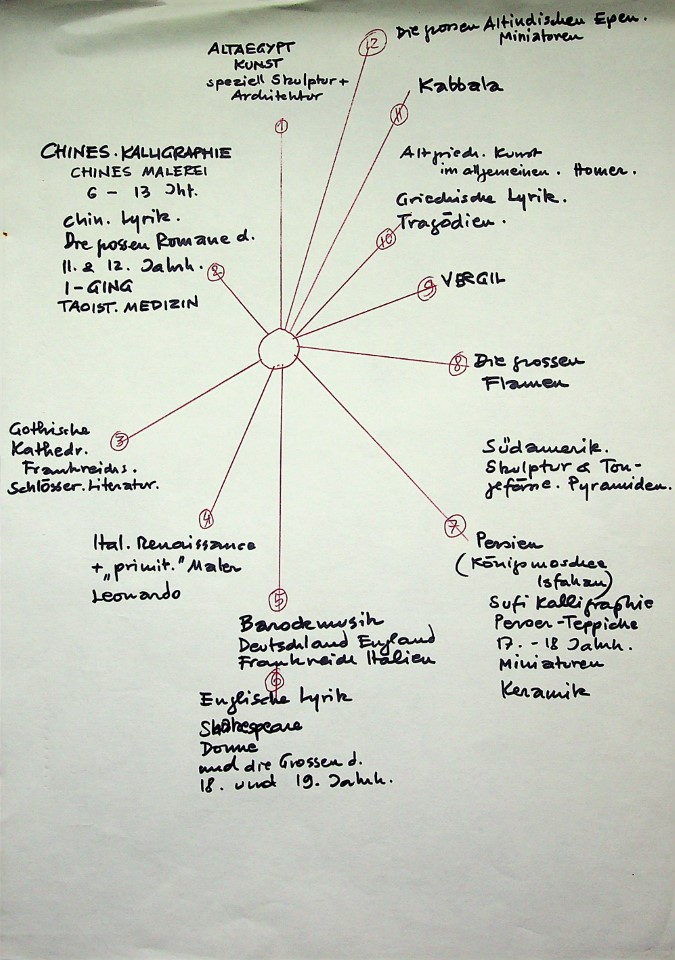 1
ALTAEGYPT
KUNST
speziell Skulptur +
Architektur
2
CHINES. KALLIGRAPHIE
CHINES MALEREI
6 - 13 Jht.
chin. Lyrik.
Die grossen Romane d.
11. & 12. Jahrh.
I-GING
TAOIST. MEDIZIN
3
Gothische
Kathedr.
Frankreichs.
Schlösser. Literatur.
4
Ital. Renaissance
+ „primit." Maler
Leonardo
5
Barockmusik
Deutschland England
Frankreich Italien
6
Englische Lyrik
Shakespeare
Donne
und die Grossen d.
18. und 19. Jahrh.
7
Persien
(Königsmoschee
Isfahan)
Sufi Kalligraphie
Perser-Teppiche
17. - 18 Jahrh.
Miniatoren
Keramik
Südamerik.
Skulptur & Ton-
gefässe. Pyramiden.
8
Die grossen
Flamen
9
VERGIL
10
Altgriech. Kunst
im allgemeinen. Homer.
Griechische Lyrik.
Tragödien.
11
Kabbala
12
Die grossen Altindischen Epen.
Miniatoren